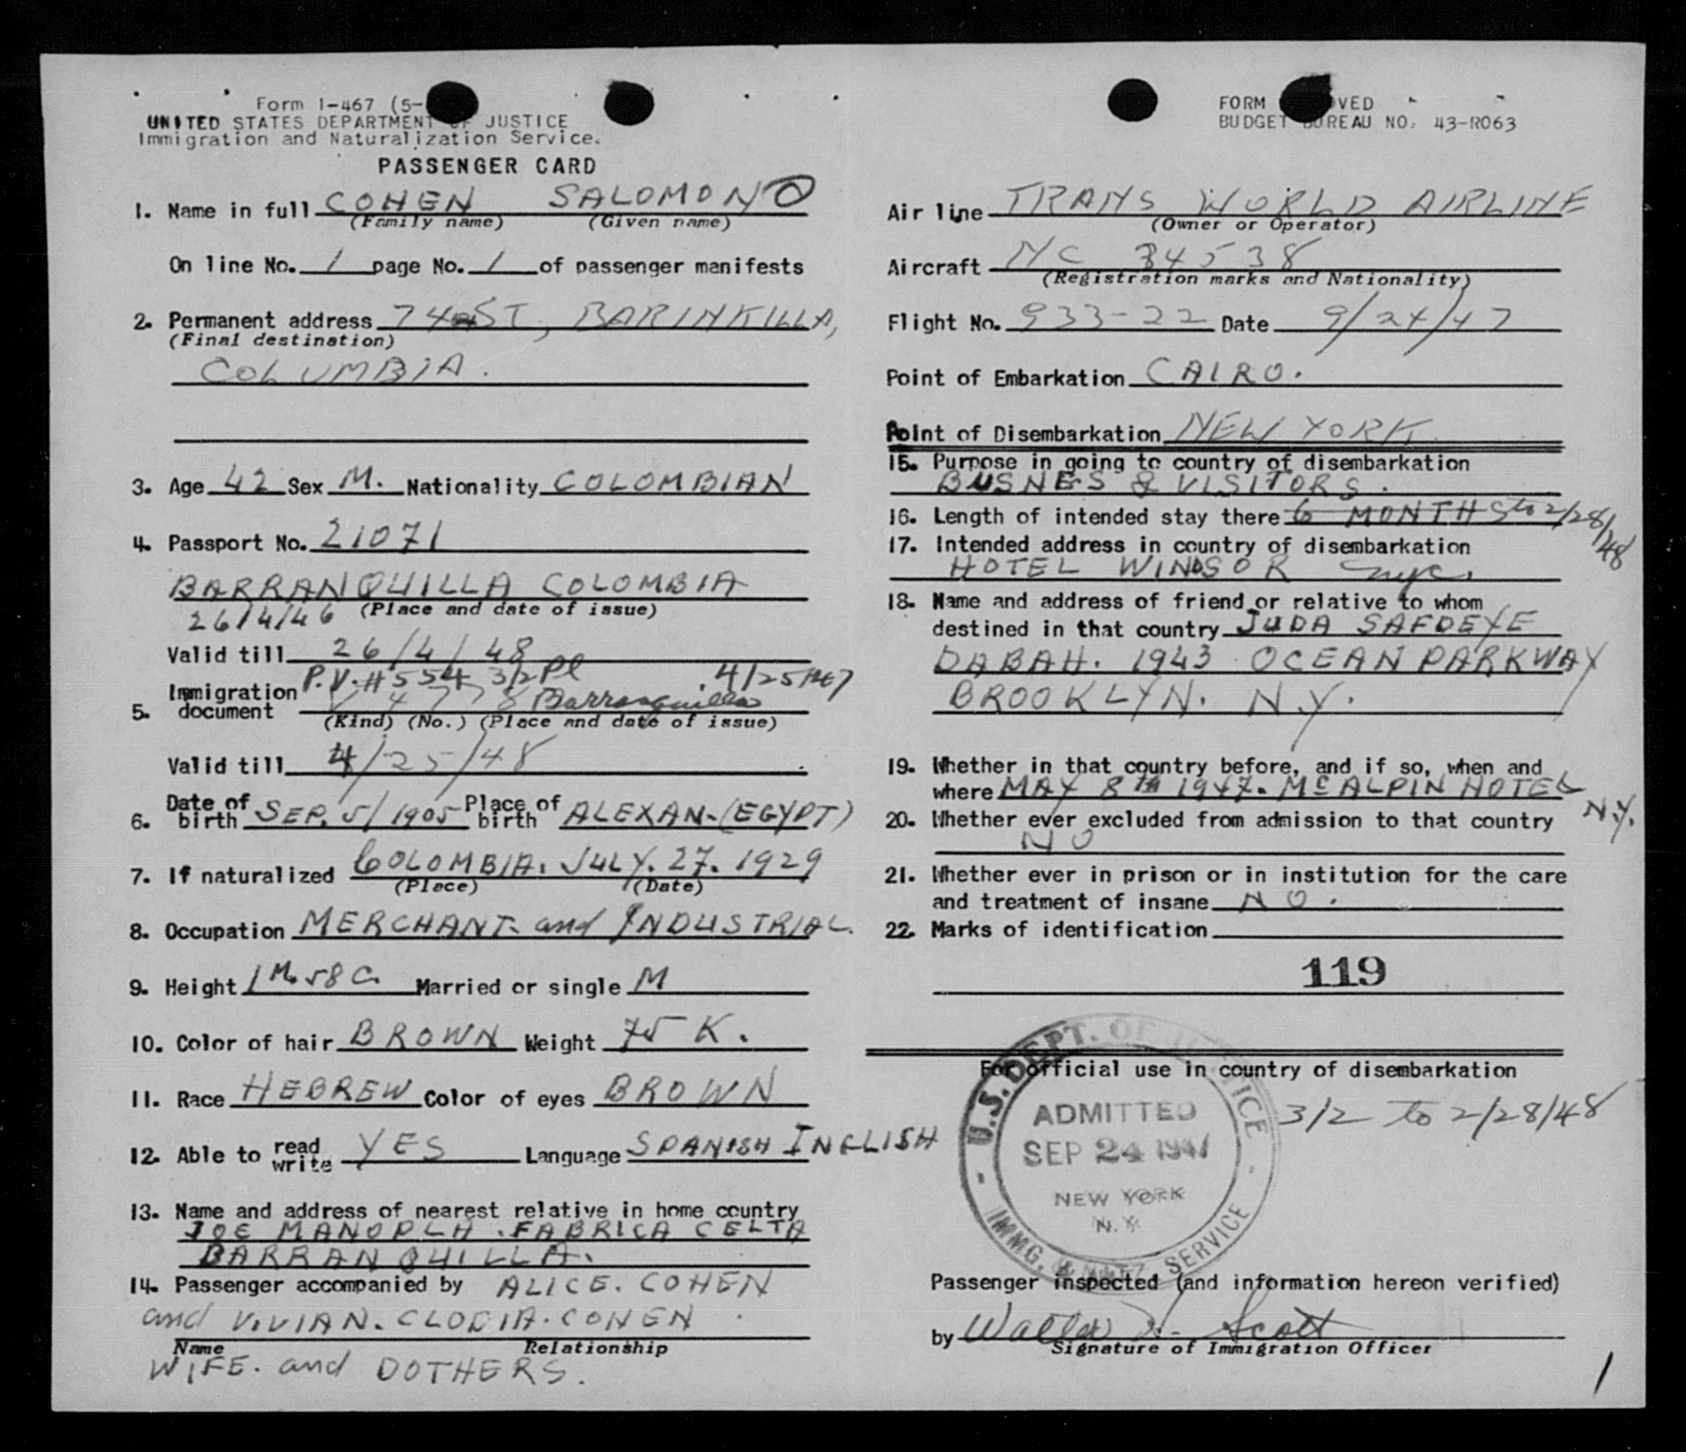 Form I-467 (5-
UNITED STATES DEPARTMENT OF JUSTICE
Immigration and Naturalization Service.
PASSENGER CARD
1. Name in full COHEN SALOMONO
(Family name) (Given name)
On line No. 1 page No. 1 of passenger manifests
2. Permanent address 74 ST, BARINKILLA,
(Final destination)
COLUMBIA.
3. Age 42 Sex M. Nationality COLOMBIAN
4. Passport No. 21071
BARRANQUILLA COLOMBIA
26/4/46 (Place and date of issue)
Valid till 26/4/48
P.V. #554 3/2 Pl 4/25/47
5. Immigration document V 47778 Barranquilla
(Kind) (No.) (Place and date of issue)
Valid till 4/25/48
6. Date of birth SEP. 5/1905 Place of birth ALEXAN-(EGYPT)
7. If naturalized COLOMBIA. JULY. 27. 1929
(Place) (Date)
8. Occupation MERCHANT- and INDUSTRIAL.
9. Height 1 M. 58 C. Married or single M
10. Color of hair BROWN Weight 75 K.
11. Race HEBREW Color of eyes BROWN
12. Able to read write YES Language SPANISH INGLISH
13. Name and address of nearest relative in home country
JOE MANOPLA. FABRICA CELTA
BARRANQUILLA.
14. Passenger accompanied by ALICE. COHEN
and VIVIAN. CLODIA. COHEN
Name Relationship
WIFE. and DOTHERS.
FORM VED
BUDGET BUREAU NO. 43-R063
Air line TRANS WORLD AIRLINE
(Owner or Operator)
Aircraft NC 34538
(Registration marks and Nationality)
Flight No. 933-22 Date 9/24/47
Point of Embarkation CAIRO.
Point of Disembarkation NEW YORK
15. Purpose in going to country of disembarkation
BUSNES & VISITORS.
16. Length of intended stay there 6 MONTHS to 2/28/48
17. Intended address in country of disembarkation
HOTEL WINDSOR nyc.
18. Name and address of friend or relative to whom
destined in that country JUDA SAFDEYE
DABAH. 1943 OCEAN PARKWAY
BROOKLYN. N.Y.
19. Whether in that country before, and if so, when and
where MAY 8TH 1947. McALPIN HOTEL N.Y.
20. Whether ever excluded from admission to that country
NO
21. Whether ever in prison or in institution for the care
and treatment of insane NO.
22. Marks of identification
119
For official use in country of disembarkation
3/2 to 2/28/48
U.S. DEPT. OF JUSTICE
ADMITTED
SEP 24 1947
NEW YORK
N.Y.
IMMG. & NATZ. SERVICE
Passenger inspected (and information hereon verified)
by Walter H. Scott
Signature of Immigration Officer
1